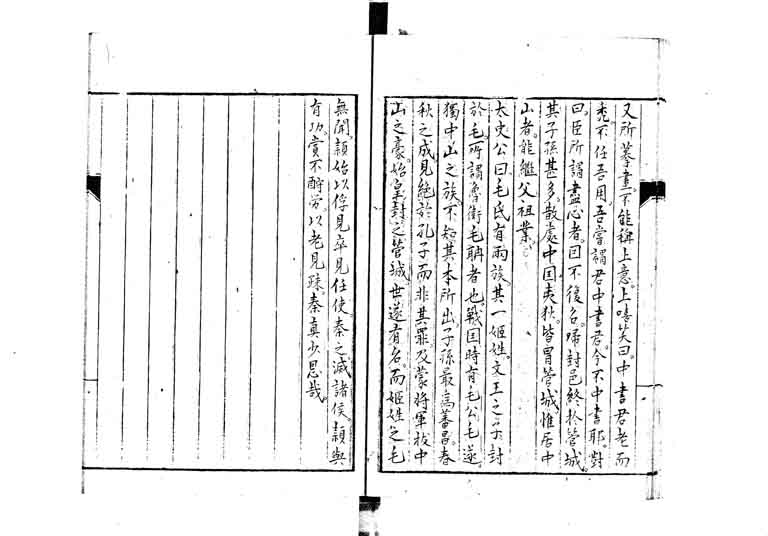 又所摹畫。不能稱上意。上嘻笑曰。中書君老而
禿。不任吾用。吾嘗謂君中書。君今不中書耶。對
曰。臣所謂盡心者。囙不復召。歸封邑。終於管城。
其子孫甚多。散處中囯夷狄。皆冒管城。惟居中
山者。能繼父祖業。
太史公曰。毛氏有兩族。其一姬姓。文王之子。封
於毛。所謂魯衛毛聃者也。戰囯時有毛公毛遂。
獨中山之族。不知其本所出。子孫最爲蕃昌。春
秋之成。見絕於孔子。而非其罪。及蒙將軍拔中
山之豪。始皇封之管城。世遂有名。而姬姓之毛
無聞。頴始以俘見。卒見任使。秦之滅諸侯。頴與
有功。賞不酧勞。以老見疎。秦真少恩哉。